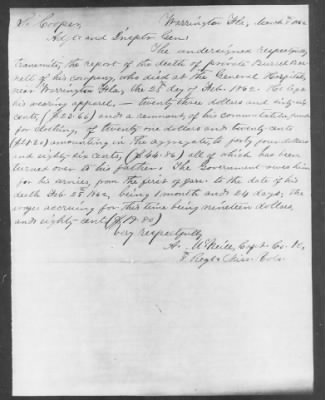 S. Cooper, Warrington Fla, March 1862
Adjt and Insptr Gen.
The undersigned respectfully
transmits the report of the death of private Burrell
of his company, who died at the General Hospital,
near Warrington Fla, the 28 day of Feb. 1862. He left
his wearing apparel, — twenty three dollars and sixty six
cents, ($23.66) and a remnant of his commutation fund
for clothing, of twenty one dollars and twenty cents
($21.20) amounting in the aggregate, to forty four dollars
and eighty six cents, ($44.86) all of which has been
turned over to his father. The Government owes him
for his services, from the first of Jan. to the date of his
death Feb. 28, 1862, being 1 month and 24 days, the
wages accruing for this time being nineteen dollars
and eighty cents ($19.80)
Very respectfully
A. McNeill, Capt. Co. K,
Regt Miss Vols.